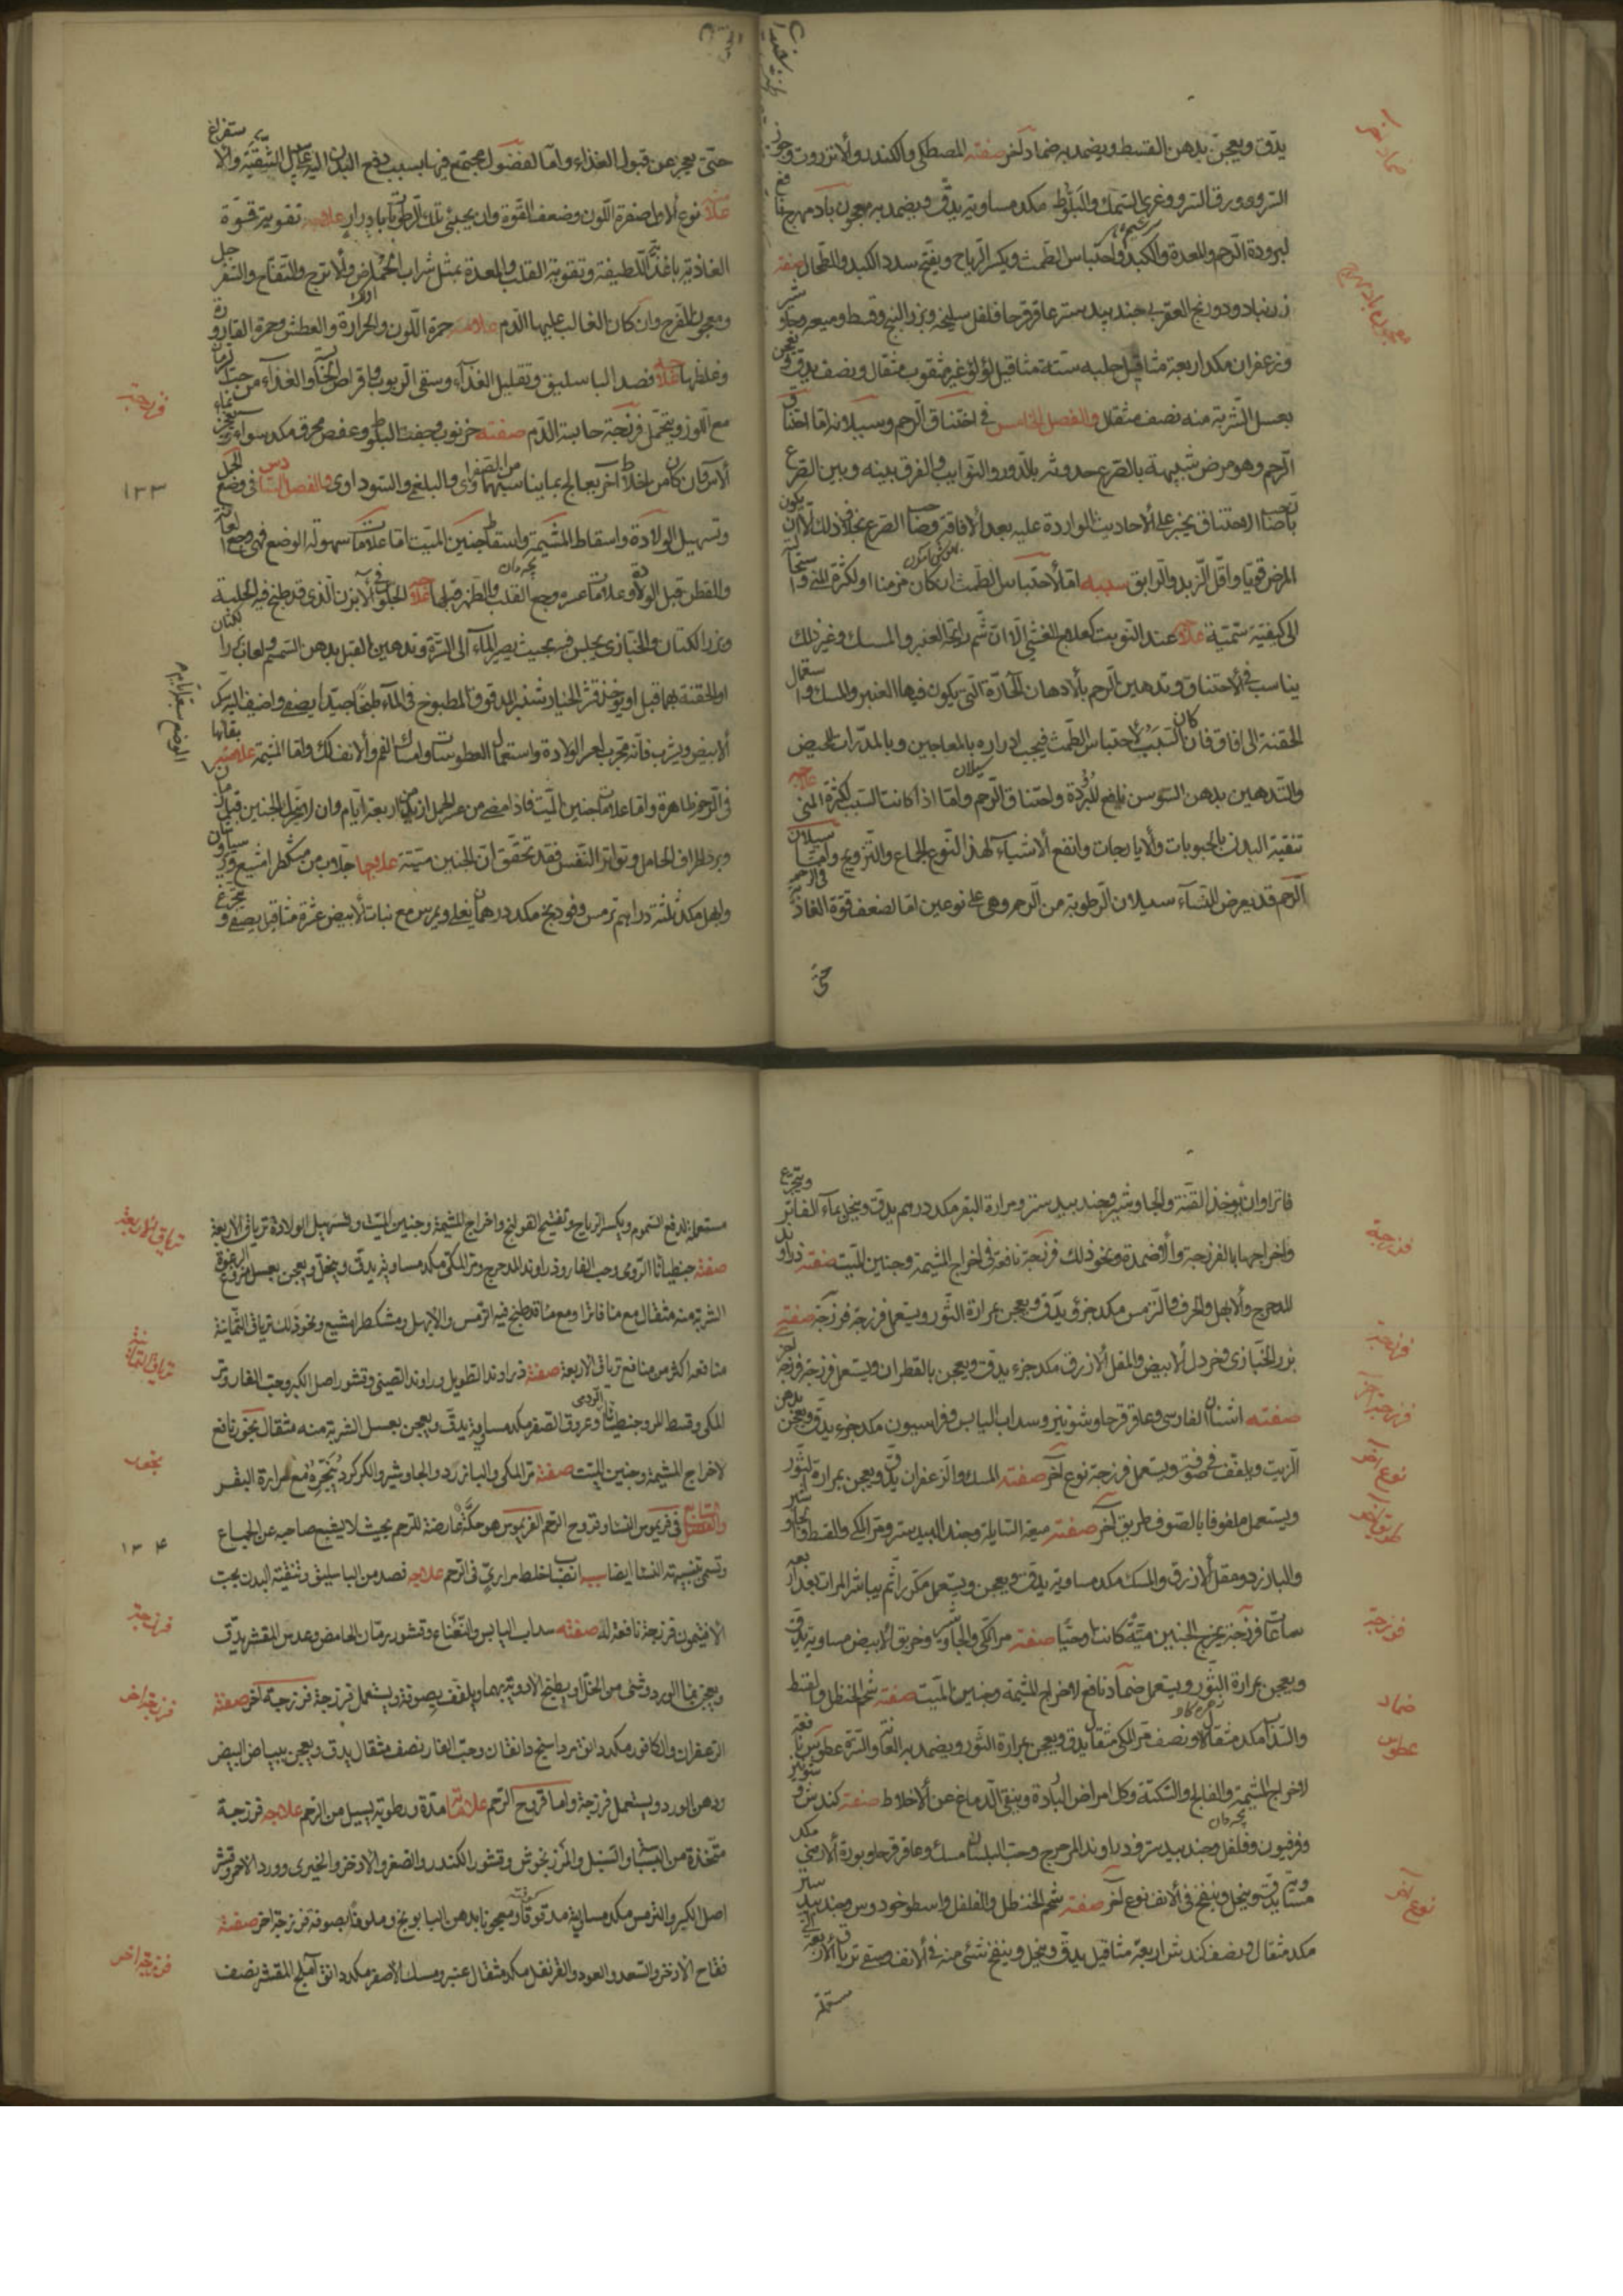 يدق ويعجن بدهن القسط ويضمد به ضماد آخر صفته المصطكى والكندر والانزروت وجوز
السرو وورق السرو وغرى السمك والبلوط مكد مساوية يدق ويضمد به معجون باد مهرج نافع
لبرودة الرحم والمعدة والكبد واحتباس الطمث ويكسر الرياح ويفتح سدد الكبد والطحال صفته
زرنباد ودرونج العقربى جندبيدستر عاقرقرحا فلفل سليخه وبزر البنج وقسط وميعه وجاوشير
وزعفران مكد اربعة مثاقيل حلبه ستة مثاقيل لؤلؤ غير مثقوب مثقال ونصف يدق ويعجن
بعسل الشربة منه نصف مثقال والفصل الخامس فى اختناق الرحم وسيلانه اما اختناق
الرحم وهو مرض شبيهة بالصرع حدوثه بالدور والنوايب والفرق بينه وبين الصرع
ان صاحب الاختناق يخبر على الاحاديث الواردة عليه بعد الافاقة وصاحب الصرع بخلاف ذلك الا ان يكون
المرض قويا واقل الزبد والرابق سببه اما لاحتباس الطمث ان كان مزمنا او لكثرة المنى واستحالته
الى كيفية سمية علاجه عند النوبت كعلاج الغشى الا ان شم رائحة العنبر والمسك وغير ذلك
يناسب فى الاختناق وتدهين الرحم بالادهان الحارة التى يكون فيها العنبر والمسك واستعمال
الحقنة الى افاق فان كان السبب لاحتباس الطمث فيجب ادراره بالمعاجين وبالمدرات للحيض
والتدهين بدهن السوسن نافع لبردة واختناق الرحم واما اذا كانت السبب لكثرة المنى علاجه
تنقية البدن بالحبوبات والايارجات وانفع الاشياء لهذا النوع الجماع والتزويج واما سيلان
الرحم قد يعرض للنساء سيلان الرطوبة من الرحم وهى على نوعين اما لضعف قوة الغاذية
حتى
حتى يعجز عن قبول الغذاء واما لفضول مجتمع فيها بسبب دفع البدن اليه على سبيل التنقية والاستفراغ
علامة نوع الاول صفرة اللون وضعف القوة وان يجئ تلك الرطوبات بادرار علاجه تقوية قوة
الغاذية باغذية اللطيفة وتقوية القلب والمعدة بمثل شراب الحماض والاترج والتفاح والسفرجل
ومعجون المفرح وان كان الغالب عليها الدم علامته حمرة اللون والحرارة والعطش وحمرة القارورة
وغلظها علاجه فصد الباسليق وتقليل الغذاء وسقى الربوب واقراص والغذاء من حب الرمان
مع اللوز ويتحمل فرزجة حابسة الدم صفته خرنوب وجفت البلوط وعفص محرق مكد سواء يعجن بماء
الآس وان كان من اخلاط آخر يعالج بما يناسبها من الصفراوى والبلغمى والسوداوى والفصل السادس فى وضع الحمل
وتسهيل الولادة واسقاط المشيمة واسقاط جنين الميت اما علامات سهولة الوضع فهى وجع العانة
والقطن قبل الولادة وعلامات عسره وجع القلب والظهر قبلها علاجه الجلوس فى الآبزن الذى قد طبخ فيه الحلبة
وبزر الكتان والخبازى يجلس فيه بحيث يصير الماء الى السرة وتدهين القبل بدهن السمسم ولعاب بزر الكتان
او الحقنة بهما قبل او يؤخذ قشر الخيارشنبر المدقوق المطبوخ فى الماء طبخا جيدا يصفى واضيف اليه سكر
الابيض ويشرب فانه مجرب لعسر الولادة واستعمال العطوسات وامساك الفم والانف كذلك واما المشيمة علامته بقائها
فى الرحم ظاهرة واما علامات جنين الميت فاذا مضى من عسر الحمل ازيد من اربعة ايام وان لم يتحرك الجنين
وبرد اطراف الحامل وتواتر النفس فقد تحقق ان الجنين ميتة علاجها جلاب من مشكطرامشيع
وابهل مكد ثلثة دراهم ترمس وفودنج مكد درهمان يغلى ويمرس مع نبات الابيض عشرة مثاقيل يصفى ويتجرع
ضماد آخر
معجون باد مهرج
فرزجة
١٣٣
فاترا وان يؤخذ القنة والجاوشير وجندبيدستر ومرارة البقر مكد درهم يدق وينخل ويتجرع بماء الفاتر
واخراجها بالفرزجة والاضمدة ونحو ذلك فرزجة نافعة فى اخراج المشيمة وجنين الميت صفته زراوند
المدحرج والابهل والحرف والترمس مكد جزؤ يدق ويعجن بمرارة الثور ويستعمل فرزجة فرزجة صفته
بزر الخبازى وخردل الابيض والمقل الازرق مكد جزء يدق ويعجن بالقطران ويستعمل فرزجة فرزجة آخر
صفته اشنان الفارسى وعاقرقرحا وشونيز وسداب اليابس وفراسيون مكد جزء يدق ويعجن بدهن
الزيت ويلفف فى صوفة ويستعمل فرزجة نوع آخر صفته المسك والزعفران يدق ويعجن بمرارة الثور
ويستعمل ملفوفا بالصوف طريق آخر صفته ميعة السايلة وجندبيدستر ومر المكى والقسط والجاوشير
والبازرد ومقل الازرق والمسك مكد مساوية يدق ويعجن ويستعمل مكررا ثم يباشر المرات بعد اربعة
ساعات فرزجة يخرج الجنين ميتة كانت او حيا صفته مر المكى والجاوشير وخربق الابيض مساوية يدق
ويعجن بمرارة الثور ويستعمل ضماد نافع لاخراج المشيمة وجنين الميت صفته شحم الحنظل والقسط
والسذاب مكد مثقال ونصف مر المكى مثقال يدق ويعجن بمرارة الثور ويضمد به العانة والسرة عطوس نافعة
لاخراج المشيمة والفالج والسكتة وكل امراض الباردة وينقى الدماغ عن الاخلاط صفته كندش وشونيز
وفرفيون وفلفل وجندبيدستر وزراوند المدحرج وحب البلسان مسك وعاقرقرحا وبورة الارمنى مكد
مساوية يدق وينخل وينفخ فى الانف نوع آخر صفته شحم الحنظل والفلفل واسطوخودوس وجندبيدستر
مكد مثقال ونصف كندش اربعة مثاقيل يدق وينخل وينفخ شئ منه فى الانف وسقى ترياق الاربعة
مستعملة
فرزجة
فرزجة
فرزجة آخر
نوع آخر
طريق آخر
فرزجة
ضماد
عطوس
نوع آخر
مستعملة لدفع السموم ويكسر الرياح وتفتيح القولنج واخراج المشيمة وجنين الميت وتسهيل الولادة ترياق الاربعة
صفته جنطيانا الرومى وحب الغار وزراوند المدحرج ومر المكى مكد مساوية يدق وينخل ويعجن بعسل منزوع الرغوة
الشربة منه مثقال مع ماء فاترا او مع ماء قد طبخ فيه الترمس والابهل ومشكطرامشيع ونحو ذلك ترياق الثمانية
منافعه اكثر من منافع ترياق الاربعة صفته زراوند الطويل وراوند الصينى وقشور اصل الكبر وحب الغار ومر
المكى وقسط المر وجنطيانا الرومى وعروق الصفر مكد مساوية يدق ويعجن بعسل الشربة منه مثقال بخور نافع
لاخراج المشيمة وجنين الميت صفته مر المكى والبازرد والجاوشير والكركرد يبخره مع مرارة البقر
والفصل السابع فى فريموس النساء وقروح الرحم الفريموس هو حكة عارضة للرحم بحيث لا يشبع صاحبه عن الجماع
وتسمى تشبيهة النساء ايضا سببه انصباب خلط مرارى فى الرحم علاجه فصد من الباسليق وتنقية البدن بحب
الافتيمون فرزجة نافعة له صفته سداب اليابس والنعناع وقشور رمان الحامض وعدس المقشر يدق
ويعجن بماء الورد وشئ من الخل او يطبخ الادوية بهما ويلفف بصوفة ويستعمل فرزجة فرزجة آخر صفته
الزعفران والكافور مكد دانق مرداسنج دانقان وحب الغار نصف مثقال يدق ويعجن ببياض البيض
ودهن الورد ويستعمل فرزجة واما قروح الرحم علامته مدة ورطوبة يسيل من الرحم علاجه فرزجة
متخذة من والسنبل والمرزنجوش وقشور الكندر والصعتر والاذخر والخيرى وورد الاحمر وقشر
اصل الكبر والترمس مكد مساوية مدقوقا ومعجونا بدهن البابونج وملفوفا بصوفة فرزجة آخر صفته
فقاح الاذخر والسعد والعود والقرنفل مكد مثقال عنبر ومسك الاصفر مكد دانق آملج المقشر نصف
ترياق الاربعة
ترياق الثمانية
بخور
١٣٤
فرزجة
فرزجة آخر
فرزجة آخر